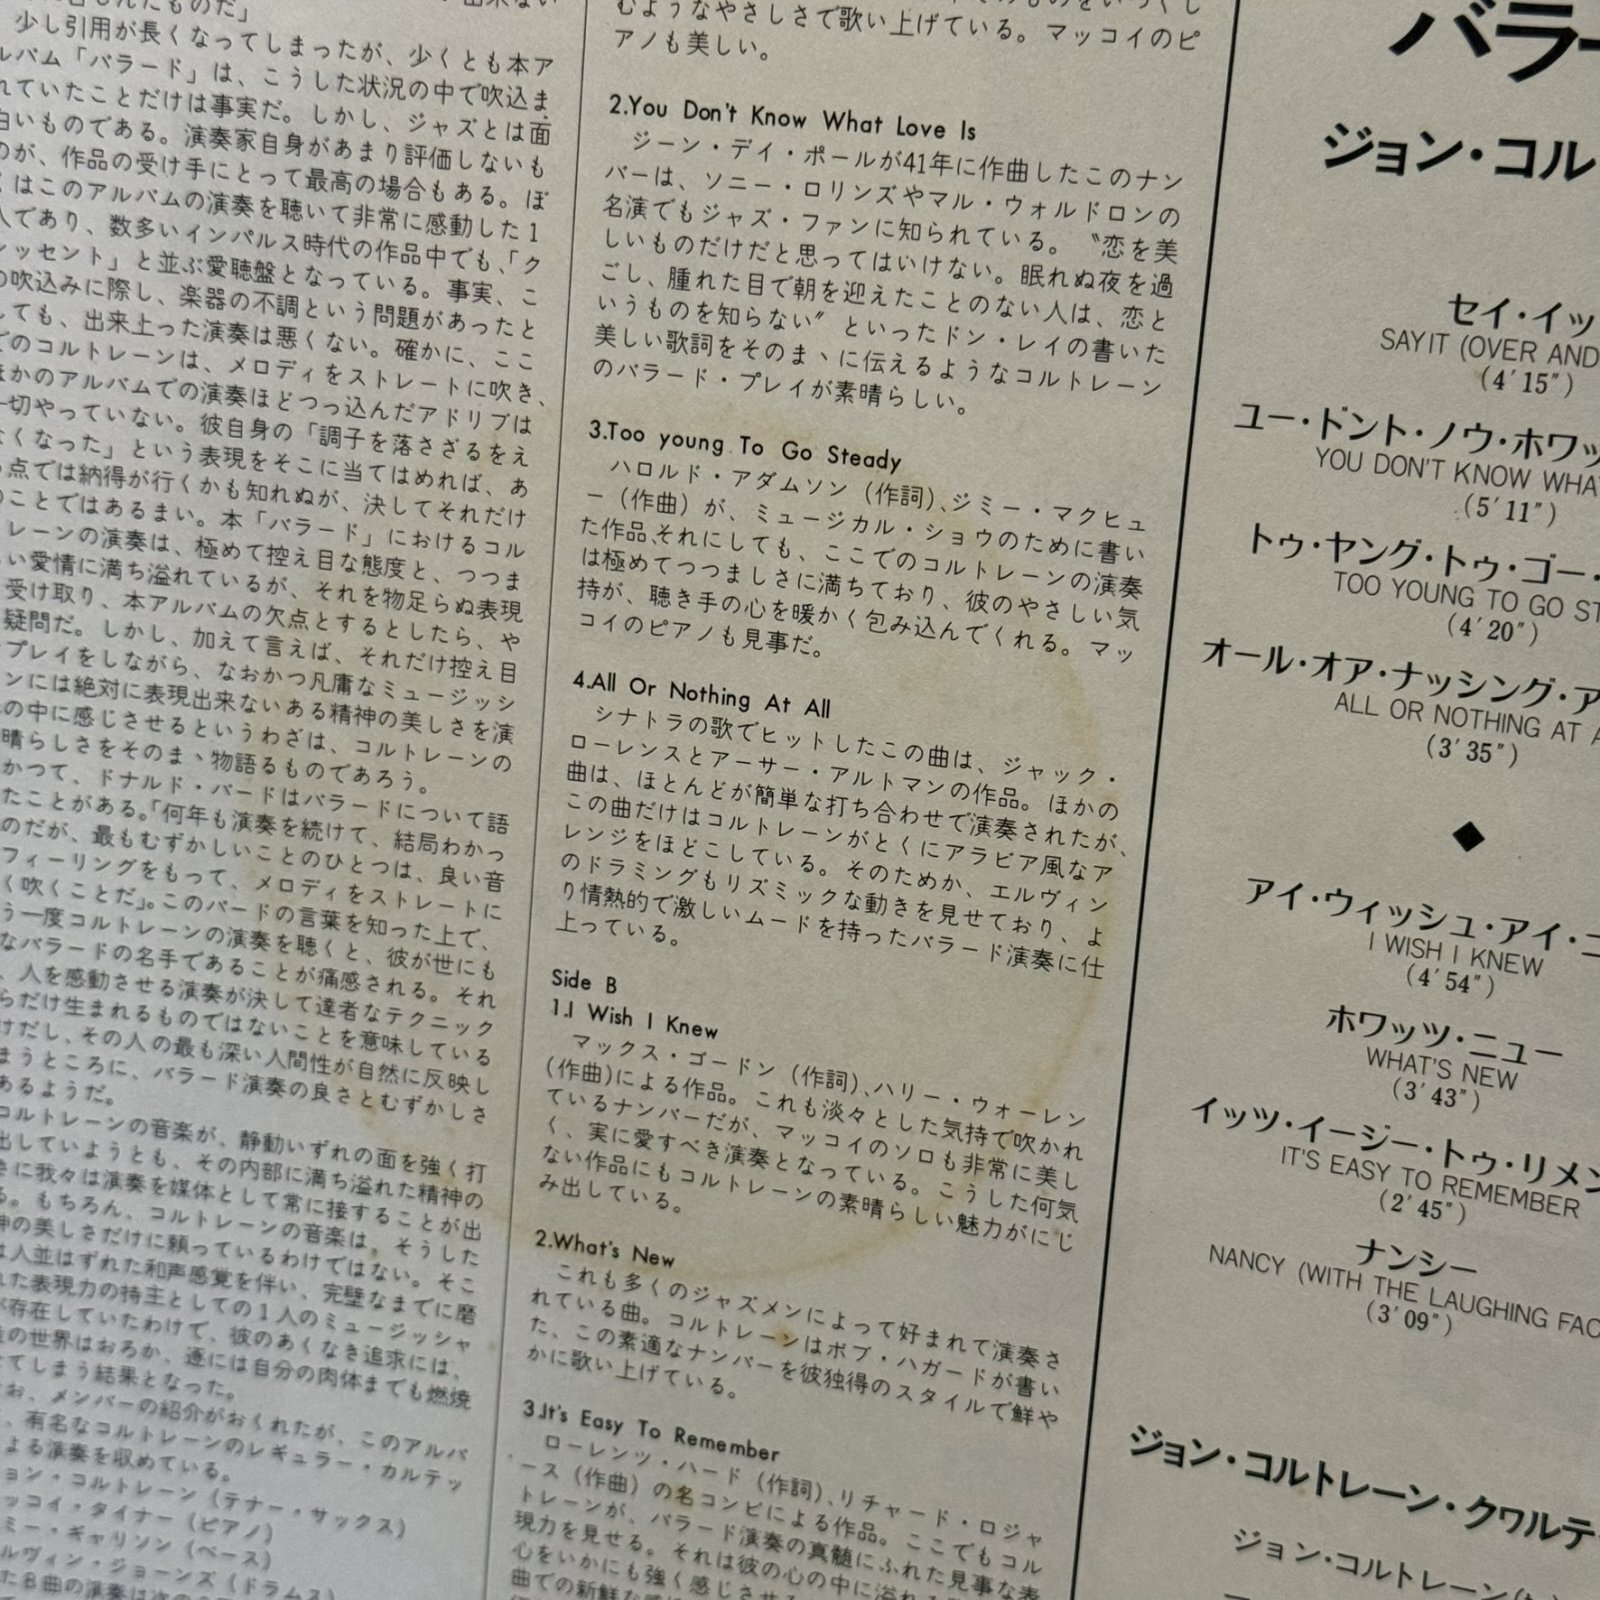 少し引用が長くなってしまったが、少くとも本ア
ルバム「バラード」は、こうした状況の中で吹込ま
れていたことだけは事実だ。しかし、ジャズとは面
白いものである。演奏家自身があまり評価しないも
のが、作品の受け手にとって最高の場合もある。ぼ
くはこのアルバムの演奏を聴いて非常に感動した1
人であり、数多いインパルス時代の作品中でも、「ク
ィッセント」と並ぶ愛聴盤となっている。事実、こ
の吹込みに際し、楽器の不調という問題があったと
しても、出来上った演奏は悪くない。確かに、ここ
でのコルトレーンは、メロディをストレートに吹き、
ほかのアルバムでの演奏ほどつっ込んだアドリブは
一切やっていない。彼自身の「調子を落さざるをえ
なくなった」という表現をそこに当てはめれば、あ
る点では納得が行くかも知れぬが、決してそれだけ
のことではあるまい。本「バラード」におけるコル
トレーンの演奏は、極めて控え目な態度と、つつま
い愛情に満ち溢れているが、それを物足らぬ表現
受け取り、本アルバムの欠点とするとしたら、や
疑問だ。しかし、加えて言えば、それだけ控え目
プレイをしながら、なおかつ凡庸なミュージッシ
ンには絶対に表現出来ないある精神の美しさを演
の中に感じさせるというわざは、コルトレーンの
晴らしさをそのまゝ物語るものであろう。
かつて、ドナルド・バードはバラードについて語
たことがある。「何年も演奏を続けて、結局わかっ
のだが、最もむずかしいことのひとつは、良い音
フィーリングをもって、メロディをストレートに
く吹くことだ」。このバードの言葉を知った上で、
う一度コルトレーンの演奏を聴くと、彼が世にも
なバラードの名手であることが痛感される。それ
、人を感動させる演奏が決して達者なテクニック
らだけ生まれるものではないことを意味している
けだし、その人の最も深い人間性が自然に反映し
まうところに、バラード演奏の良さとむずかしさ
あるようだ。
コルトレーンの音楽が、静動いずれの面を強く打
出していようとも、その内部に満ち溢れた精神の
さに我々は演奏を媒体として常に接することが出
る。もちろん、コルトレーンの音楽は、そうした
神の美しさだけに頼っているわけではない。そこ
は人並はずれた和声感覚を伴い、完璧なまでに磨
れた表現力の持主としての1人のミュージッシャ
が存在していたわけで、彼のあくなき追求には、
の世界はおろか、遂には自分の肉体までも燃焼
てしまう結果となった。
お、メンバーの紹介がおくれたが、このアルバ
、有名なコルトレーンのレギュラー・カルテッ
よる演奏を収めている。
ョン・コルトレーン（テナー・サックス）
ッコイ・タイナー（ピアノ）
ミー・ギャリソン（ベース）
ルヴィン・ジョーンズ（ドラムス）
むようなやさしさで歌い上げている。マッコイのピ
アノも美しい。
2.You Don't Know What Love Is
ジーン・デイ・ポールが41年に作曲したこのナン
バーは、ソニー・ロリンズやマル・ウォルドロンの
名演でもジャズ・ファンに知られている。〝恋を美
しいものだけだと思ってはいけない。眠れぬ夜を過
ごし、腫れた目で朝を迎えたことのない人は、恋と
いうものを知らない〟といったドン・レイの書いた
美しい歌詞をそのまゝに伝えるようなコルトレーン
のバラード・プレイが素晴らしい。
3.Too young To Go Steady
ハロルド・アダムソン（作詞）、ジミー・マクヒュ
ー（作曲）が、ミュージカル・ショウのために書い
た作品、それにしても、ここでのコルトレーンの演奏
は極めてつつましさに満ちており、彼のやさしい気
持が、聴き手の心を暖かく包み込んでくれる。マッ
コイのピアノも見事だ。
4.All Or Nothing At All
シナトラの歌でヒットしたこの曲は、ジャック・
ローレンスとアーサー・アルトマンの作品。ほかの
曲は、ほとんどが簡単な打ち合わせで演奏されたが、
この曲だけはコルトレーンがとくにアラビア風なア
レンジをほどこしている。そのためか、エルヴィン
のドラミングもリズミックな動きを見せており、よ
り情熱的で激しいムードを持ったバラード演奏に仕
上っている。
Side B
1.I Wish I Knew
マックス・ゴードン（作詞）、ハリー・ウォーレン
(作曲)による作品。これも淡々とした気持で吹かれ
ているナンバーだが、マッコイのソロも非常に美し
く、実に愛すべき演奏となっている。こうした何気
ない作品にもコルトレーンの素晴らしい魅力がにじ
み出している。
2.What's New
これも多くのジャズメンによって好まれて演奏さ
れている曲。コルトレーンはボブ・ハガードが書い
た、この素適なナンバーを彼独得のスタイルで鮮や
かに歌い上げている。
3.It's Easy To Remember
ローレンツ・ハード（作詞）、リチャード・ロジャ
ース（作曲）の名コンビによる作品。ここでもコル
トレーンが、バラード演奏の真髄にふれた見事な表
現力を見せる。それは彼の心の中に溢れる
心をいかにも強く感じさせる
曲での新鮮な
バラー
ジョン・コル
セイ・イッ
SAY IT (OVER AND
(4′15″)
ユー・ドント・ノウ・ホワッ
YOU DON'T KNOW WHA
(5′11″)
トゥ・ヤング・トゥ・ゴー・
TOO YOUNG TO GO ST
(4′20″)
オール・オア・ナッシング・ア
ALL OR NOTHING AT A
(3′35″)
◆
アイ・ウィッシュ・アイ・ニ
I WISH I KNEW
(4′54″)
ホワッツ・ニュー
WHAT'S NEW
(3′43″)
イッツ・イージー・トゥ・リメン
IT'S EASY TO REMEMBER
(2′45″)
ナンシー
NANCY (WITH THE LAUGHING FAC
(3′09″)
ジョン・コルトレーン・クヮルテ
ジョン・コルトレーン